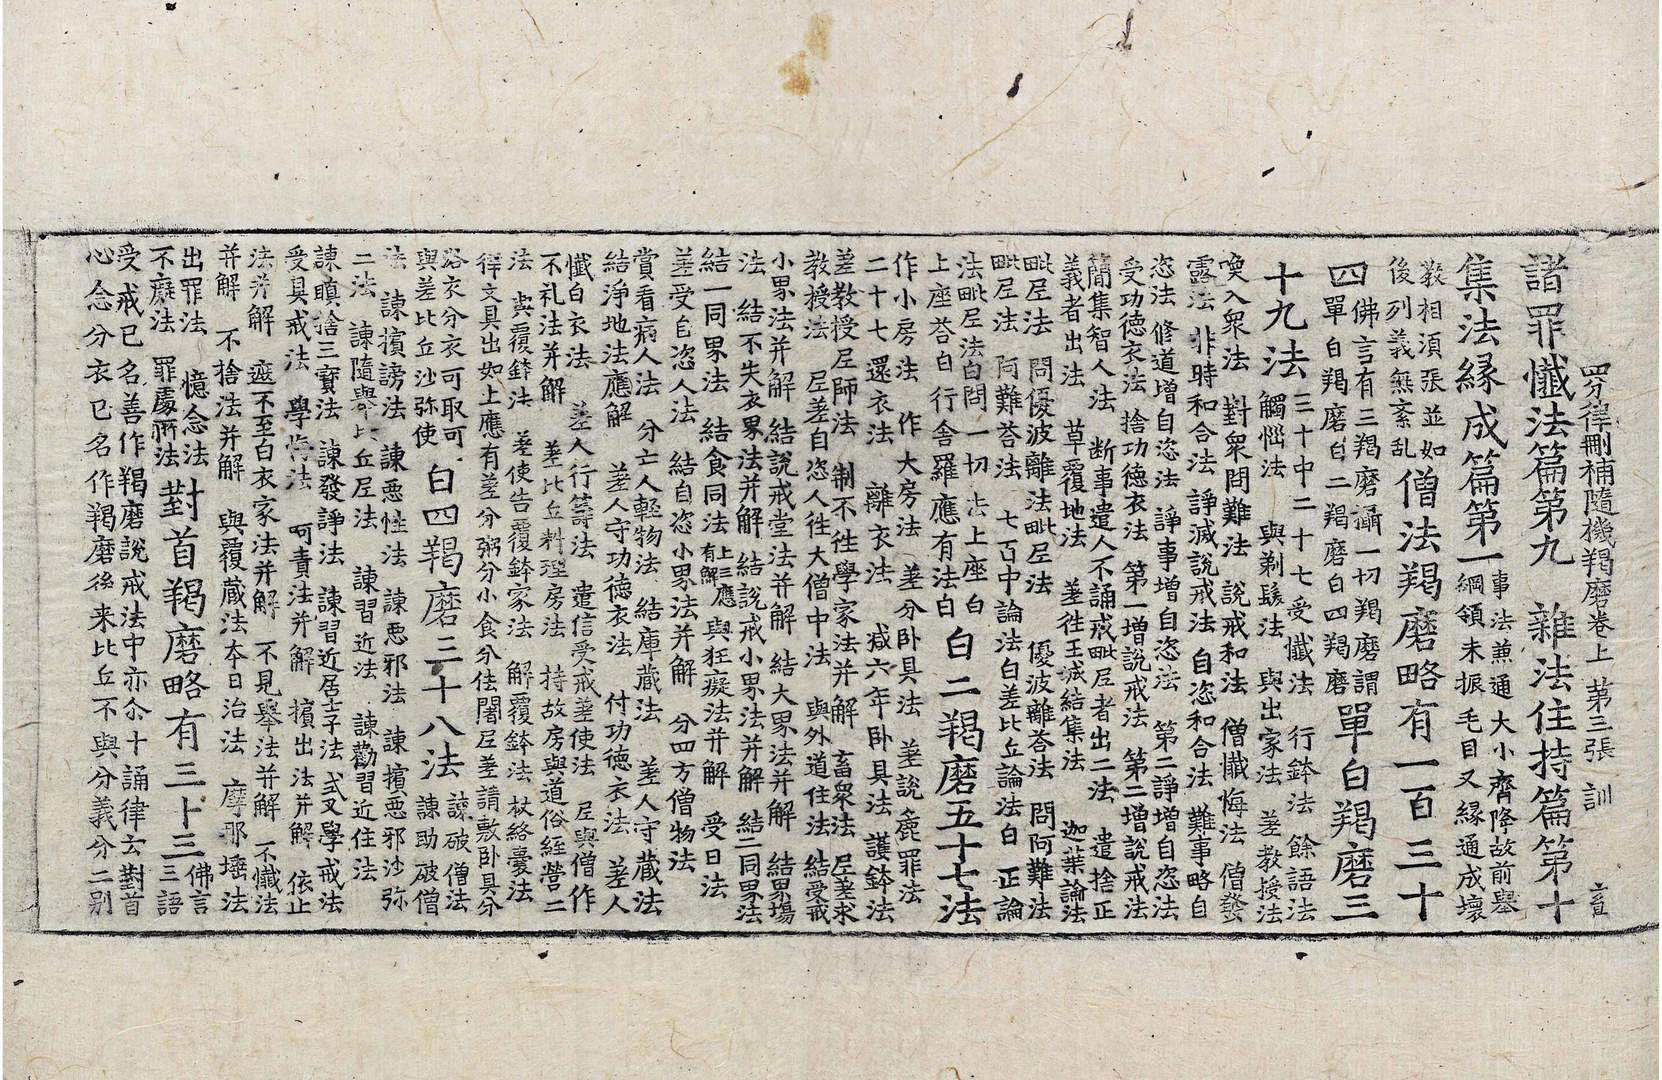 四分律刪補隨機羯磨卷上 第三張 訓
諸罪懺法篇第九 雜法住持篇第十
集法緣成篇第一
事法兼通大小齊降故前舉
綱領未振毛目又緣通成壞
教相須張並如
後列義無紊乱
僧法羯磨略有一百三十
四
佛言有三羯磨攝一切羯磨謂
單白羯磨白二羯磨白四羯磨
單白羯磨三
十九法
三十中二十七受懺法 行鉢法 餘語法
觸惱法 與剃髮法 與出家法 差教授法
喚入衆法 對衆問難法 說戒和法 僧懺悔法 僧發
露法 非時和合法 諍滅說戒法 自恣和合法 難事略自
恣法 修道增自恣法 諍事增自恣法 第二諍增自恣法
受功德衣法 捨功德衣法 第一增說戒法 第二增說戒法
簡集智人法 断事遣人不誦戒毗尼者出二法 遣捨正
義者出法 草覆地法 差徃王城結集法 迦葉論法
毗尼法 問優波離法毗尼法 優波離荅法 問阿難法
毗尼法 阿難荅法 七百中論法白差比丘論法白 正論
法毗尼法白問一切法上座白
上座荅白行舍羅應有法白
白二羯磨五十七法
作小房法 作大房法 差分卧具法 差說麁罪法
二十七還衣法 離衣法 減六年卧具法 護鉢法
差教授尼師法 制不徃學家法并解 畜衆法 尼差求
教授法 尼差自恣人徃大僧中法 與外道住法 結受戒
小界法并解 結說戒堂法并解 結大界法并解 結界場
法 結不失衣界法并解 結說戒小界法并解 結二同界法
結一同界法 結食同法
上三應
有解
與狂癡法并解 受日法
差受自恣人法 結自恣小界法并解 分四方僧物法
賞看病人法 分亡人輕物法 結庫藏法 差人守藏法
結淨地法應解 差人守功德衣法 付功德衣法 差人
懺白衣法 差人行籌法 遣信受戒差使法 尼與僧作
不礼法并解 差比丘料理房法 持故房與道俗經營二
法 與覆鉢法 差使告覆鉢家法 解覆鉢法 杖絡囊法
律文具出如上應有差分粥分小食分佉闍尼差請敷卧具分
浴衣分衣可取可
與差比丘沙弥使
白四羯磨三十八法
諫破僧法
諫助破僧
法 諫擯謗法 諫惡性法 諫惡邪法 諫擯惡邪沙弥
二法 諫隨舉比丘尼法 諫習近法 諫勸習近住法
諫瞋捨三寶法 諫發諍法 諫習近居士子法 式叉學戒法
受具戒法 學悔法 呵責法并解 擯出法并解 依止
法并解 遮不至白衣家法并解 不見舉法并解 不懺法
并解 不捨法并解 與覆藏法本日治法 摩那埵法
出罪法 憶念法
不癡法 罪處所法
對首羯磨略有三十三
佛言
三語
受戒已名善作羯磨說戒法中亦尒十誦律云對首
心念分衣已名作羯磨後来比丘不與分義分二別